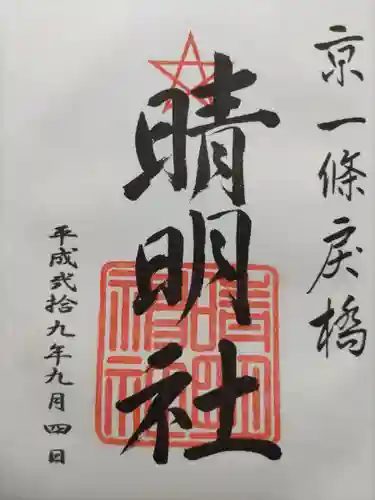 京一條戻橋
晴明社
平成弐拾九年九月四日
晴明
神社